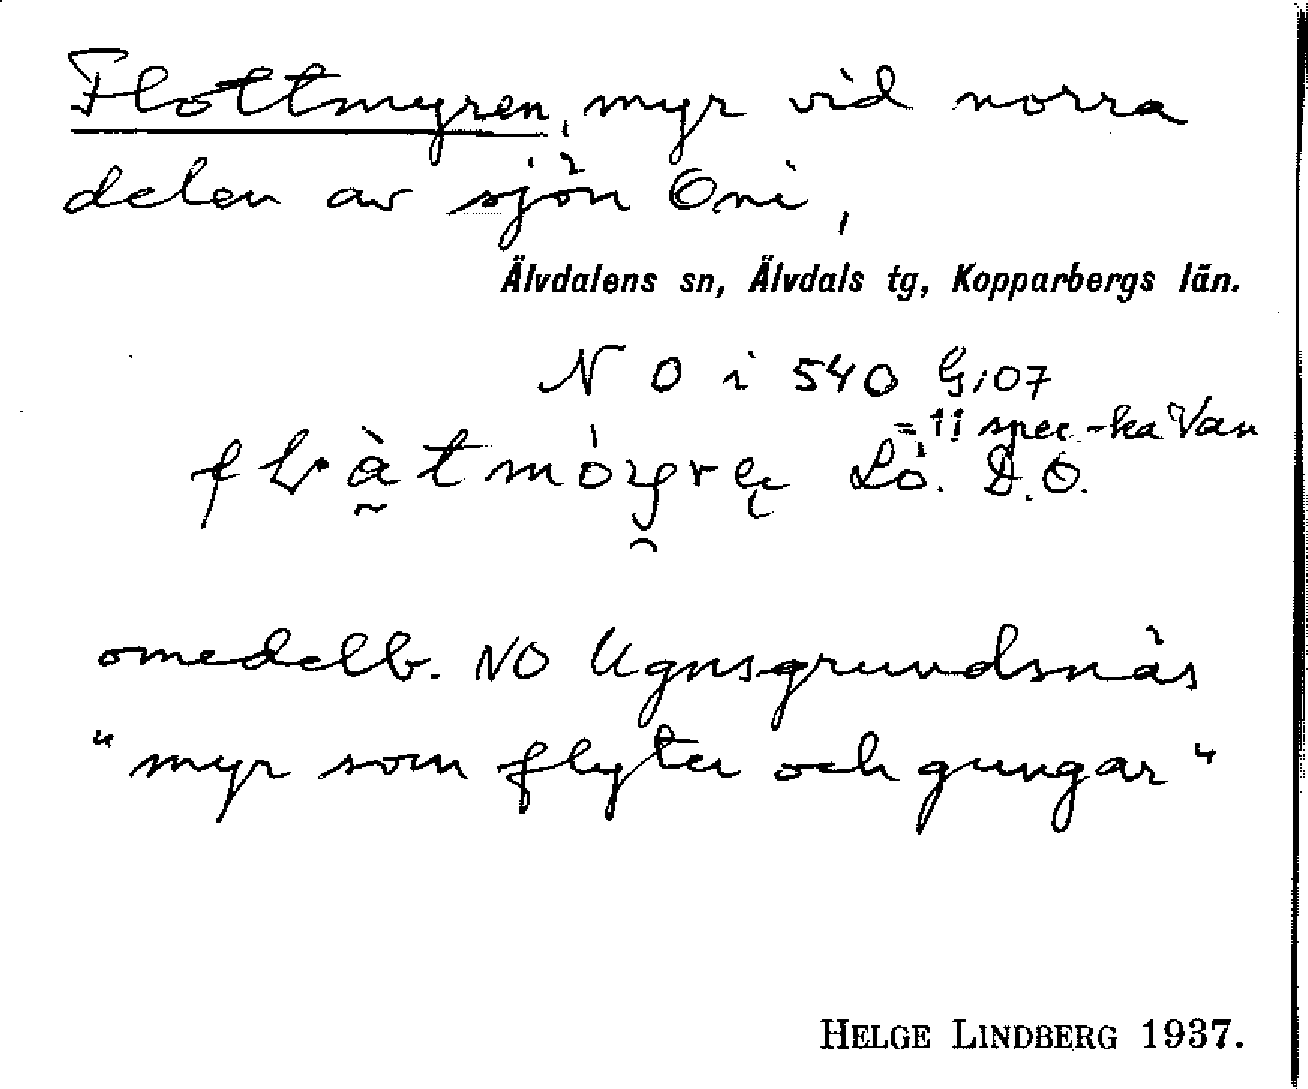 Flottmyren, myr vid norra
delen av sjön Oni,
Älvdalens sn, Älvdals tg, Kopparbergs län.
N O i 540 G, 07
Lö. D.O.
omedelb. NO Ugnsgrundsnäs
"myr som flyter och gungar"
HELGE LINDBERG 1937.